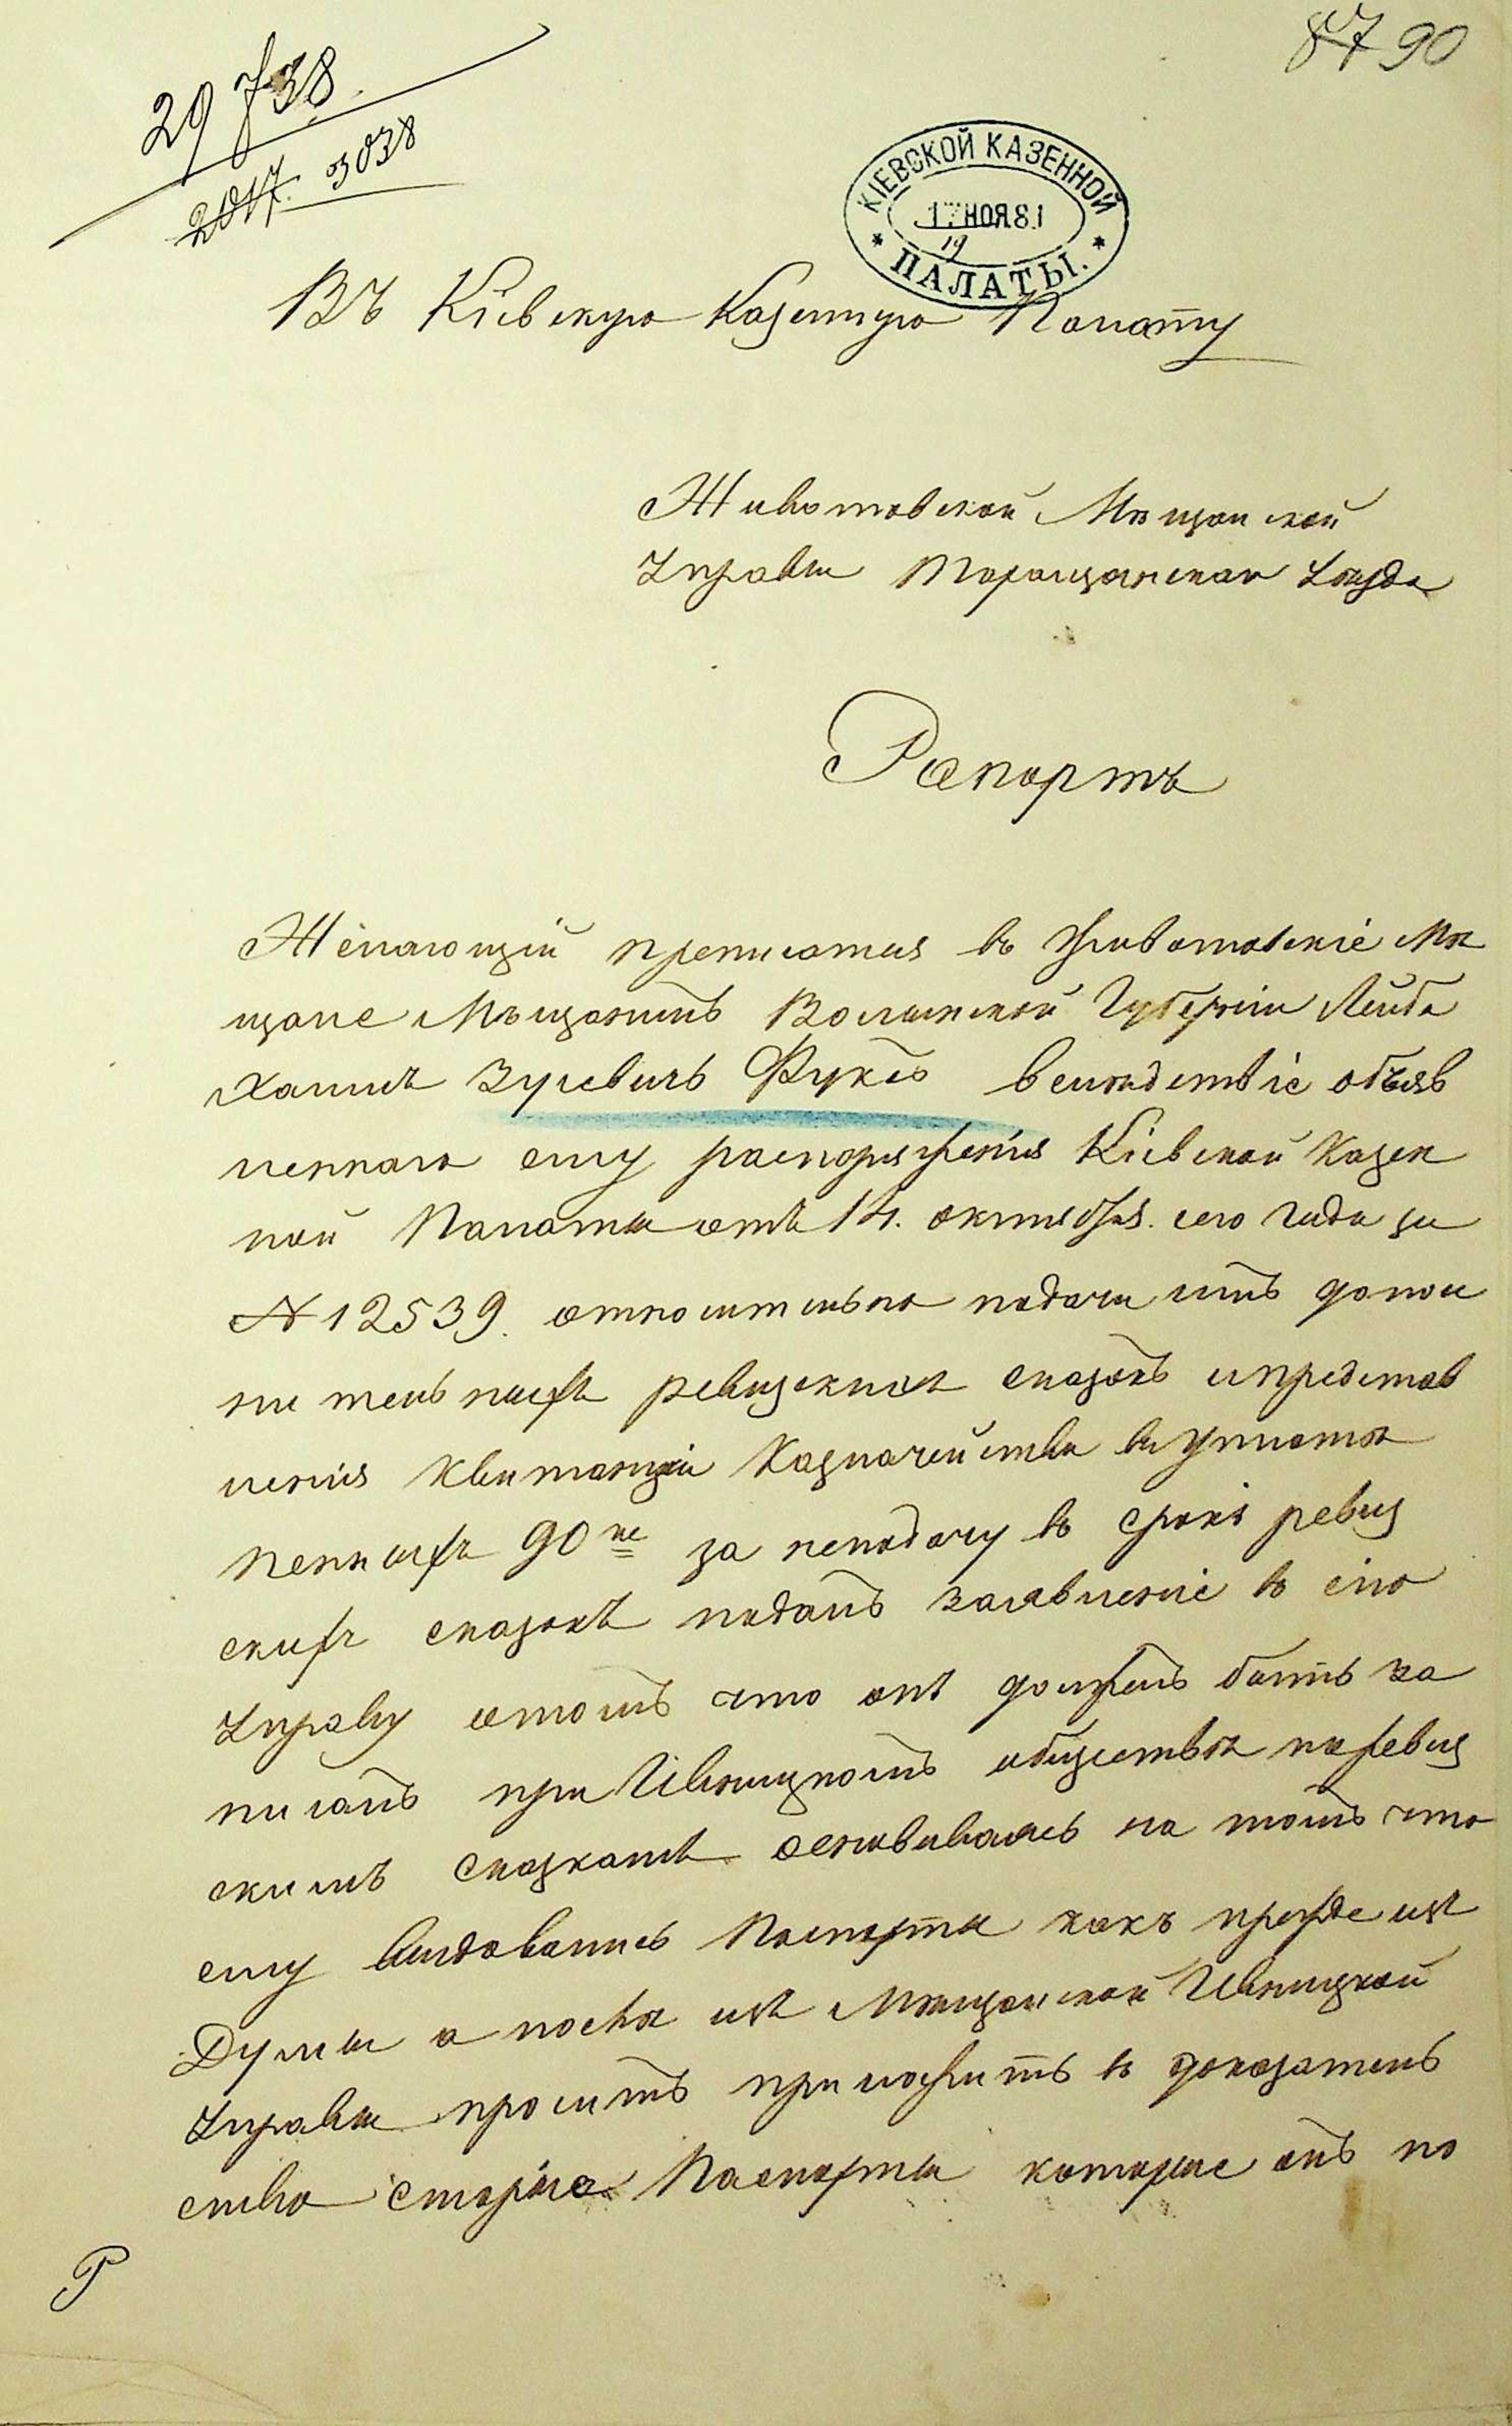 87 90
29738
2017. 3038
КІЕВСКОЙ КАЗЕННОЙ
17 НОЯ 81
19
ПАЛАТЫ.
Въ Кіевскую Казенную Палату
Животовской Мѣщанской
Управы Таращанскаго Уѣзда
Рапортъ
Желающій преписатся въ Животовскіе Мѣ
щане Мѣщанинъ Волынской Губерніи Лейба
Хаимъ Зусевичъ Фуксъ вслѣдствіе объяв
леннаго ему распоряженія Кіевской Казен
ной Палаты отъ 14. октября. сего года за
№ 12539. относительно подачи имъ допол
нительныхъ ревизскихъ сказокъ и представ
ленія Квитанціи Казначейства въ уплатѣ
пенныхъ 90 ко за неподачу въ срокъ ревиз
скихъ сказокъ подалъ заявленіе въ сію
Управу отомъ что онъ долженъ быть за
писанъ при Ивницкомъ обществѣ по ревиз
скимъ сказкамъ основываясь на томъ что
ему выдовались Паспорты какъ прежде изъ
Думы а послѣ изъ Мѣщанской Ивницкой
Управы проситъ приложить въ доказатель
ство старые Паспорты которые онъ по
Р